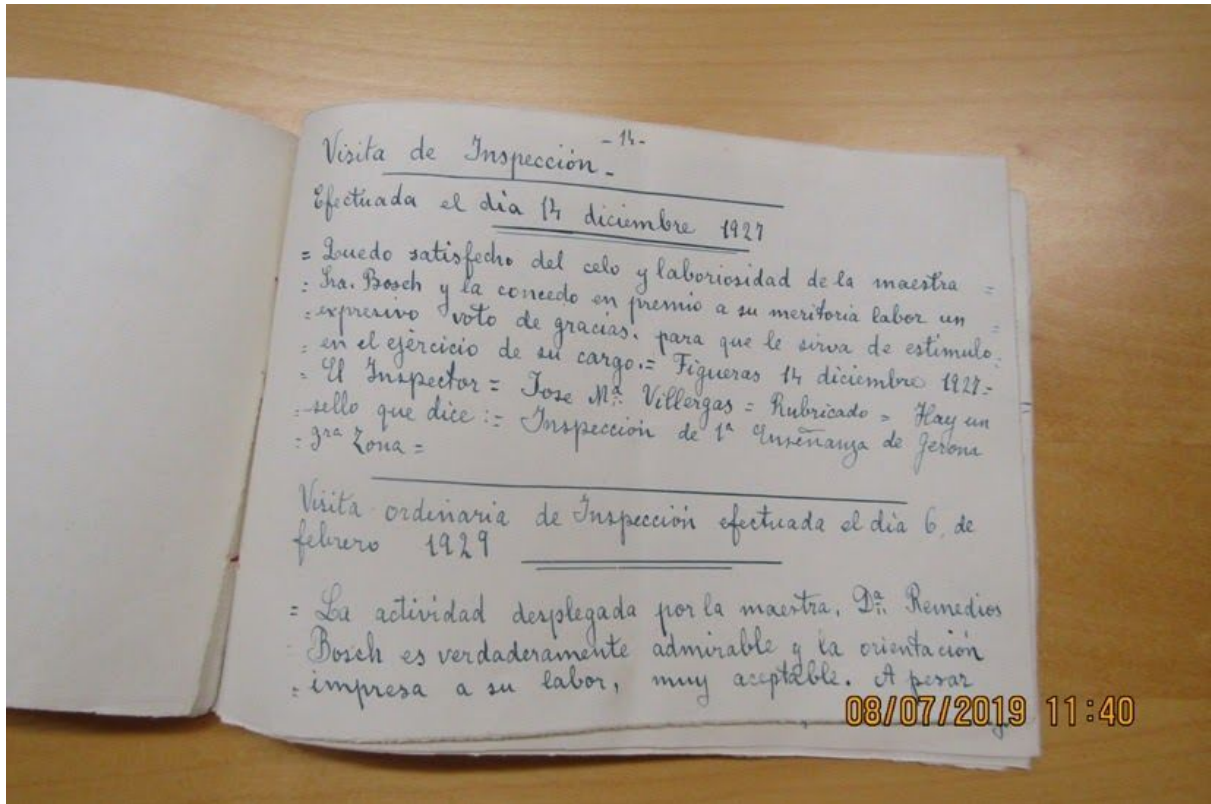 - 14 -
Visita de Inspección -
Efectuada el dia 14 diciembre 1927
= Quedo satisfecho del celo y laboriosidad de la maestra =
= Sra. Bosch y la concedo en premio a su meritoria labor un =
= expresivo voto de gracias, para que le sirva de estimulo =
= en el ejercicio de su cargo. = Figueras 14 diciembre 1927 =
= El Inspector = Jose Mª Villergas = Rubricado = Hay un
= sello que dice := Inspección de 1ª Enseñanza de Gerona
= 3ra Zona =
Visita ordinaria de Inspección efectuada el dia 6, de
febrero 1929
= La actividad desplegada por la maestra, Dª Remedios
Bosch es verdaderamente admirable y la orientación
= impresa a su labor, muy aceptable. A pesar
08/07/2019 11:40